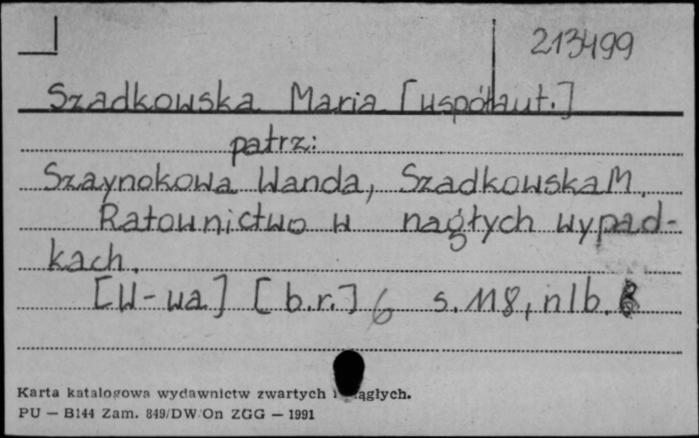 213499
Szadkowska Maria [współaut.]
patrz:
Szaynokowa Wanda, Szadkowska M.
Ratownictwo w nagłych wypad-
kach.
[W-wa] [b.r.] 6 s. 118, nlb.
Karta katalogowa wydawnictw zwartych i ciągłych.
PU — B144 Zam. 849/DW/On ZGG — 1991